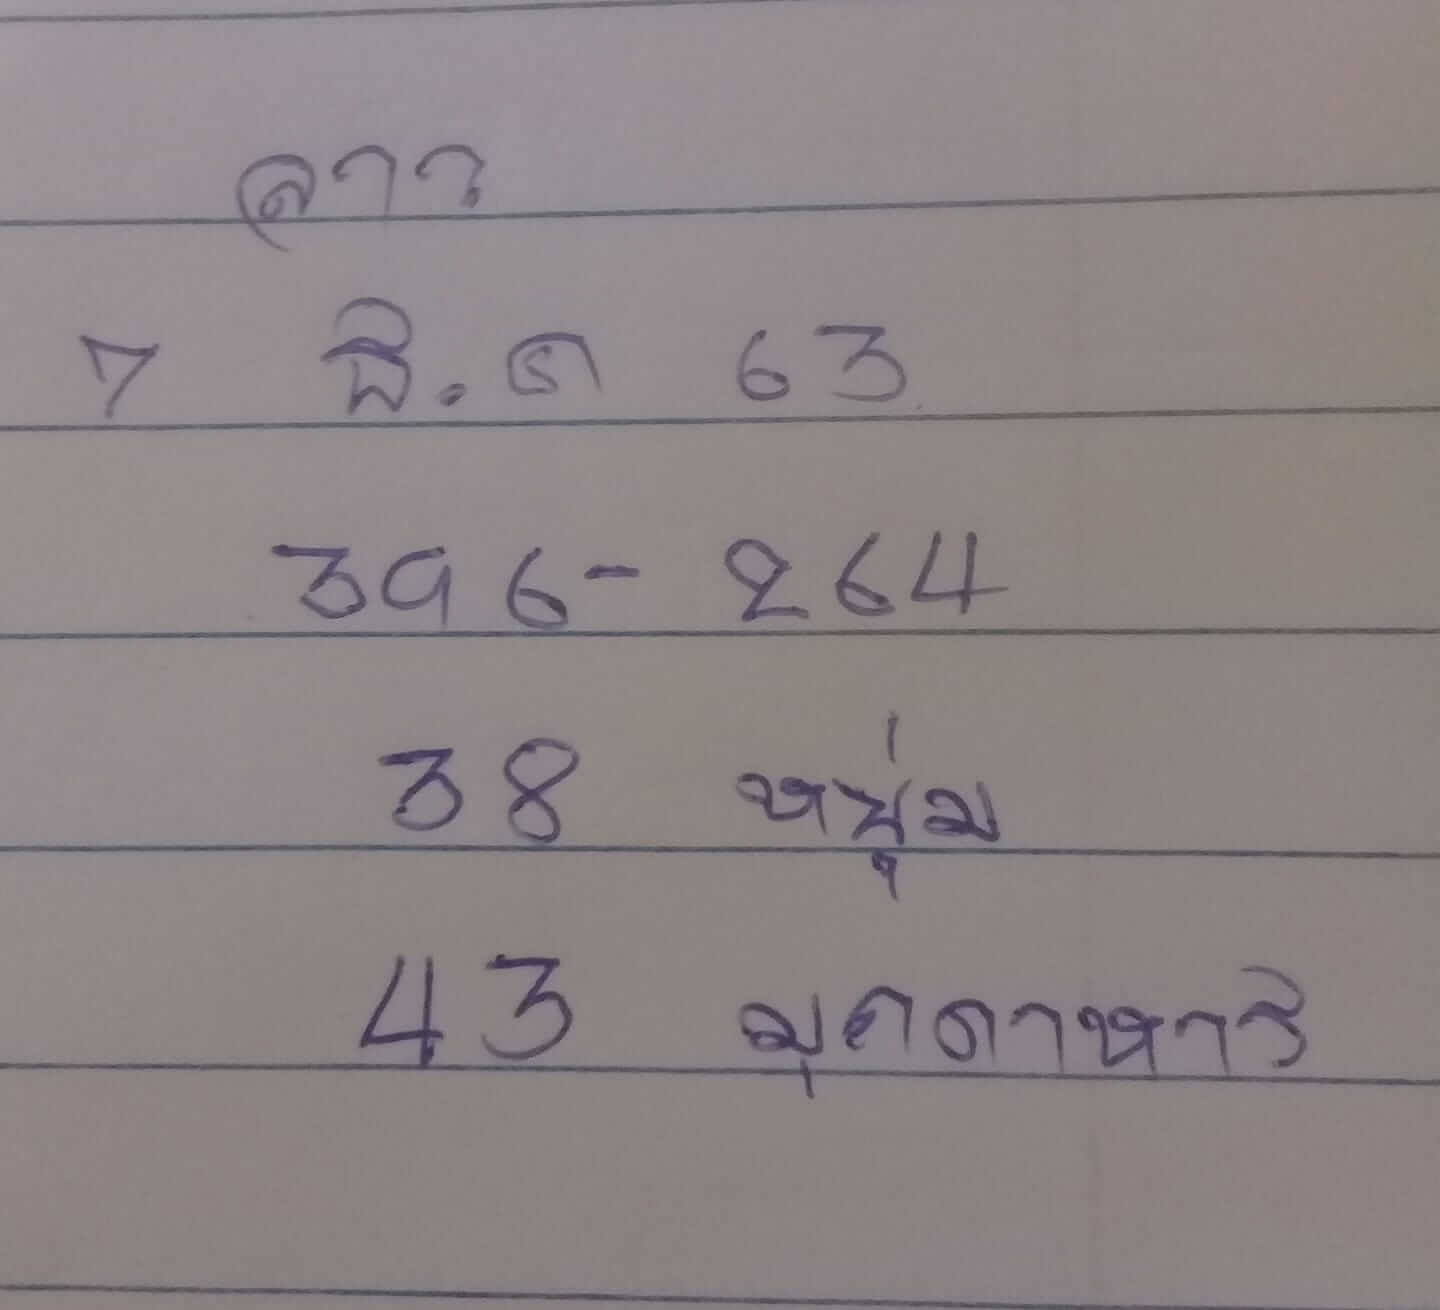 ลาว
7 ธ.ค 63
396-264
38 หนุ่ม
43 มุกดาหาร